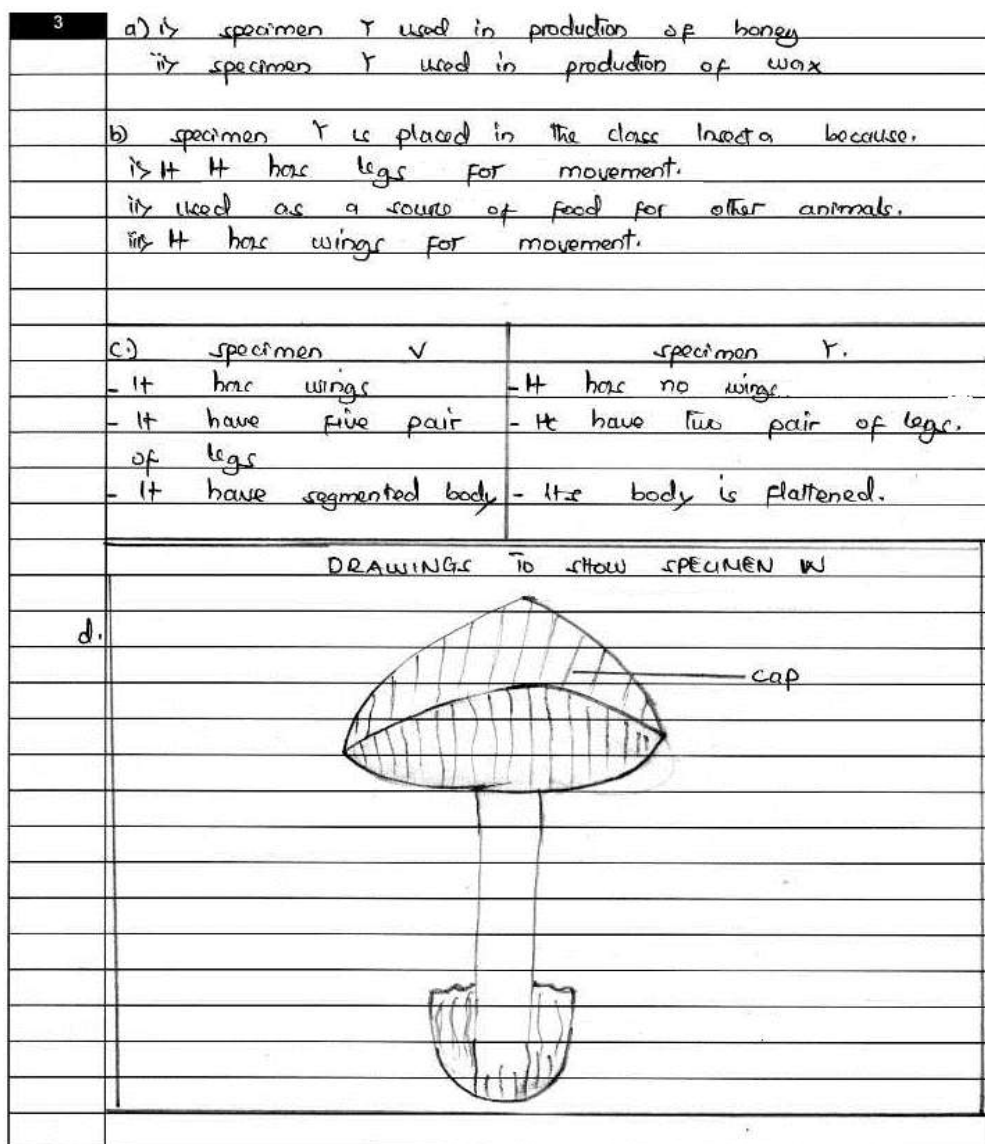 3
a) i> specimen Y used in production of honey
ii> specimen Y used in production of wax
b) specimen Y is placed in the class Insecta because.
i> It It has legs for movement.
ii> used as a source of food for other animals.
iii> It has wings for movement.
c.) specimen V
- It has wings
- It have five pair
of legs
- It have segmented body
specimen Y.
- It has no wings
- It have two pair of legs.
- Its body is flattened.
DRAWINGS TO SHOW SPECIMEN W
d.
cap